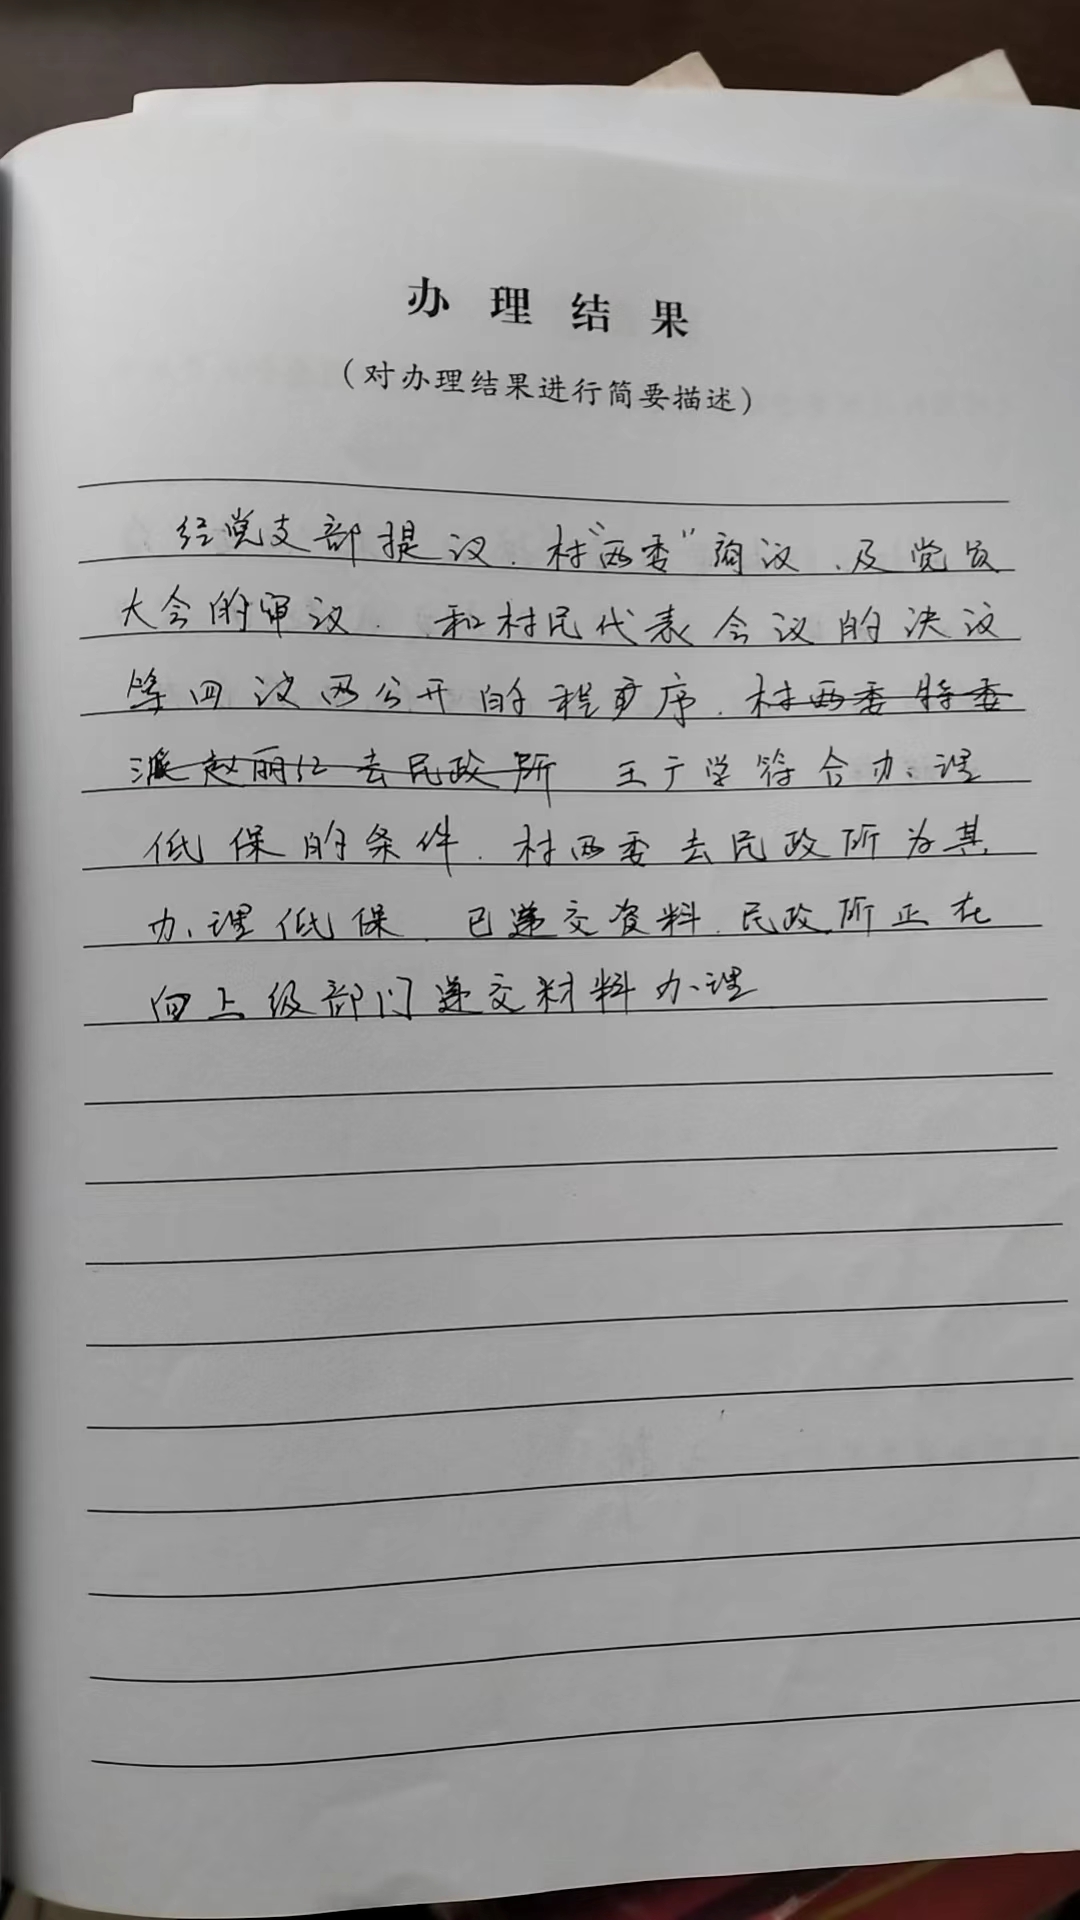 办理结果
（对办理结果进行简要描述）
经党支部提议、村“两委”商议、及党员
大会的审议、和村民代表会议的决议
等四议两公开的程序、村两委特委
派赵丽红去民政所 王广学符合办理
低保的条件、村两委去民政所为其
办理低保、已递交资料、民政所正在
向上级部门递交材料办理